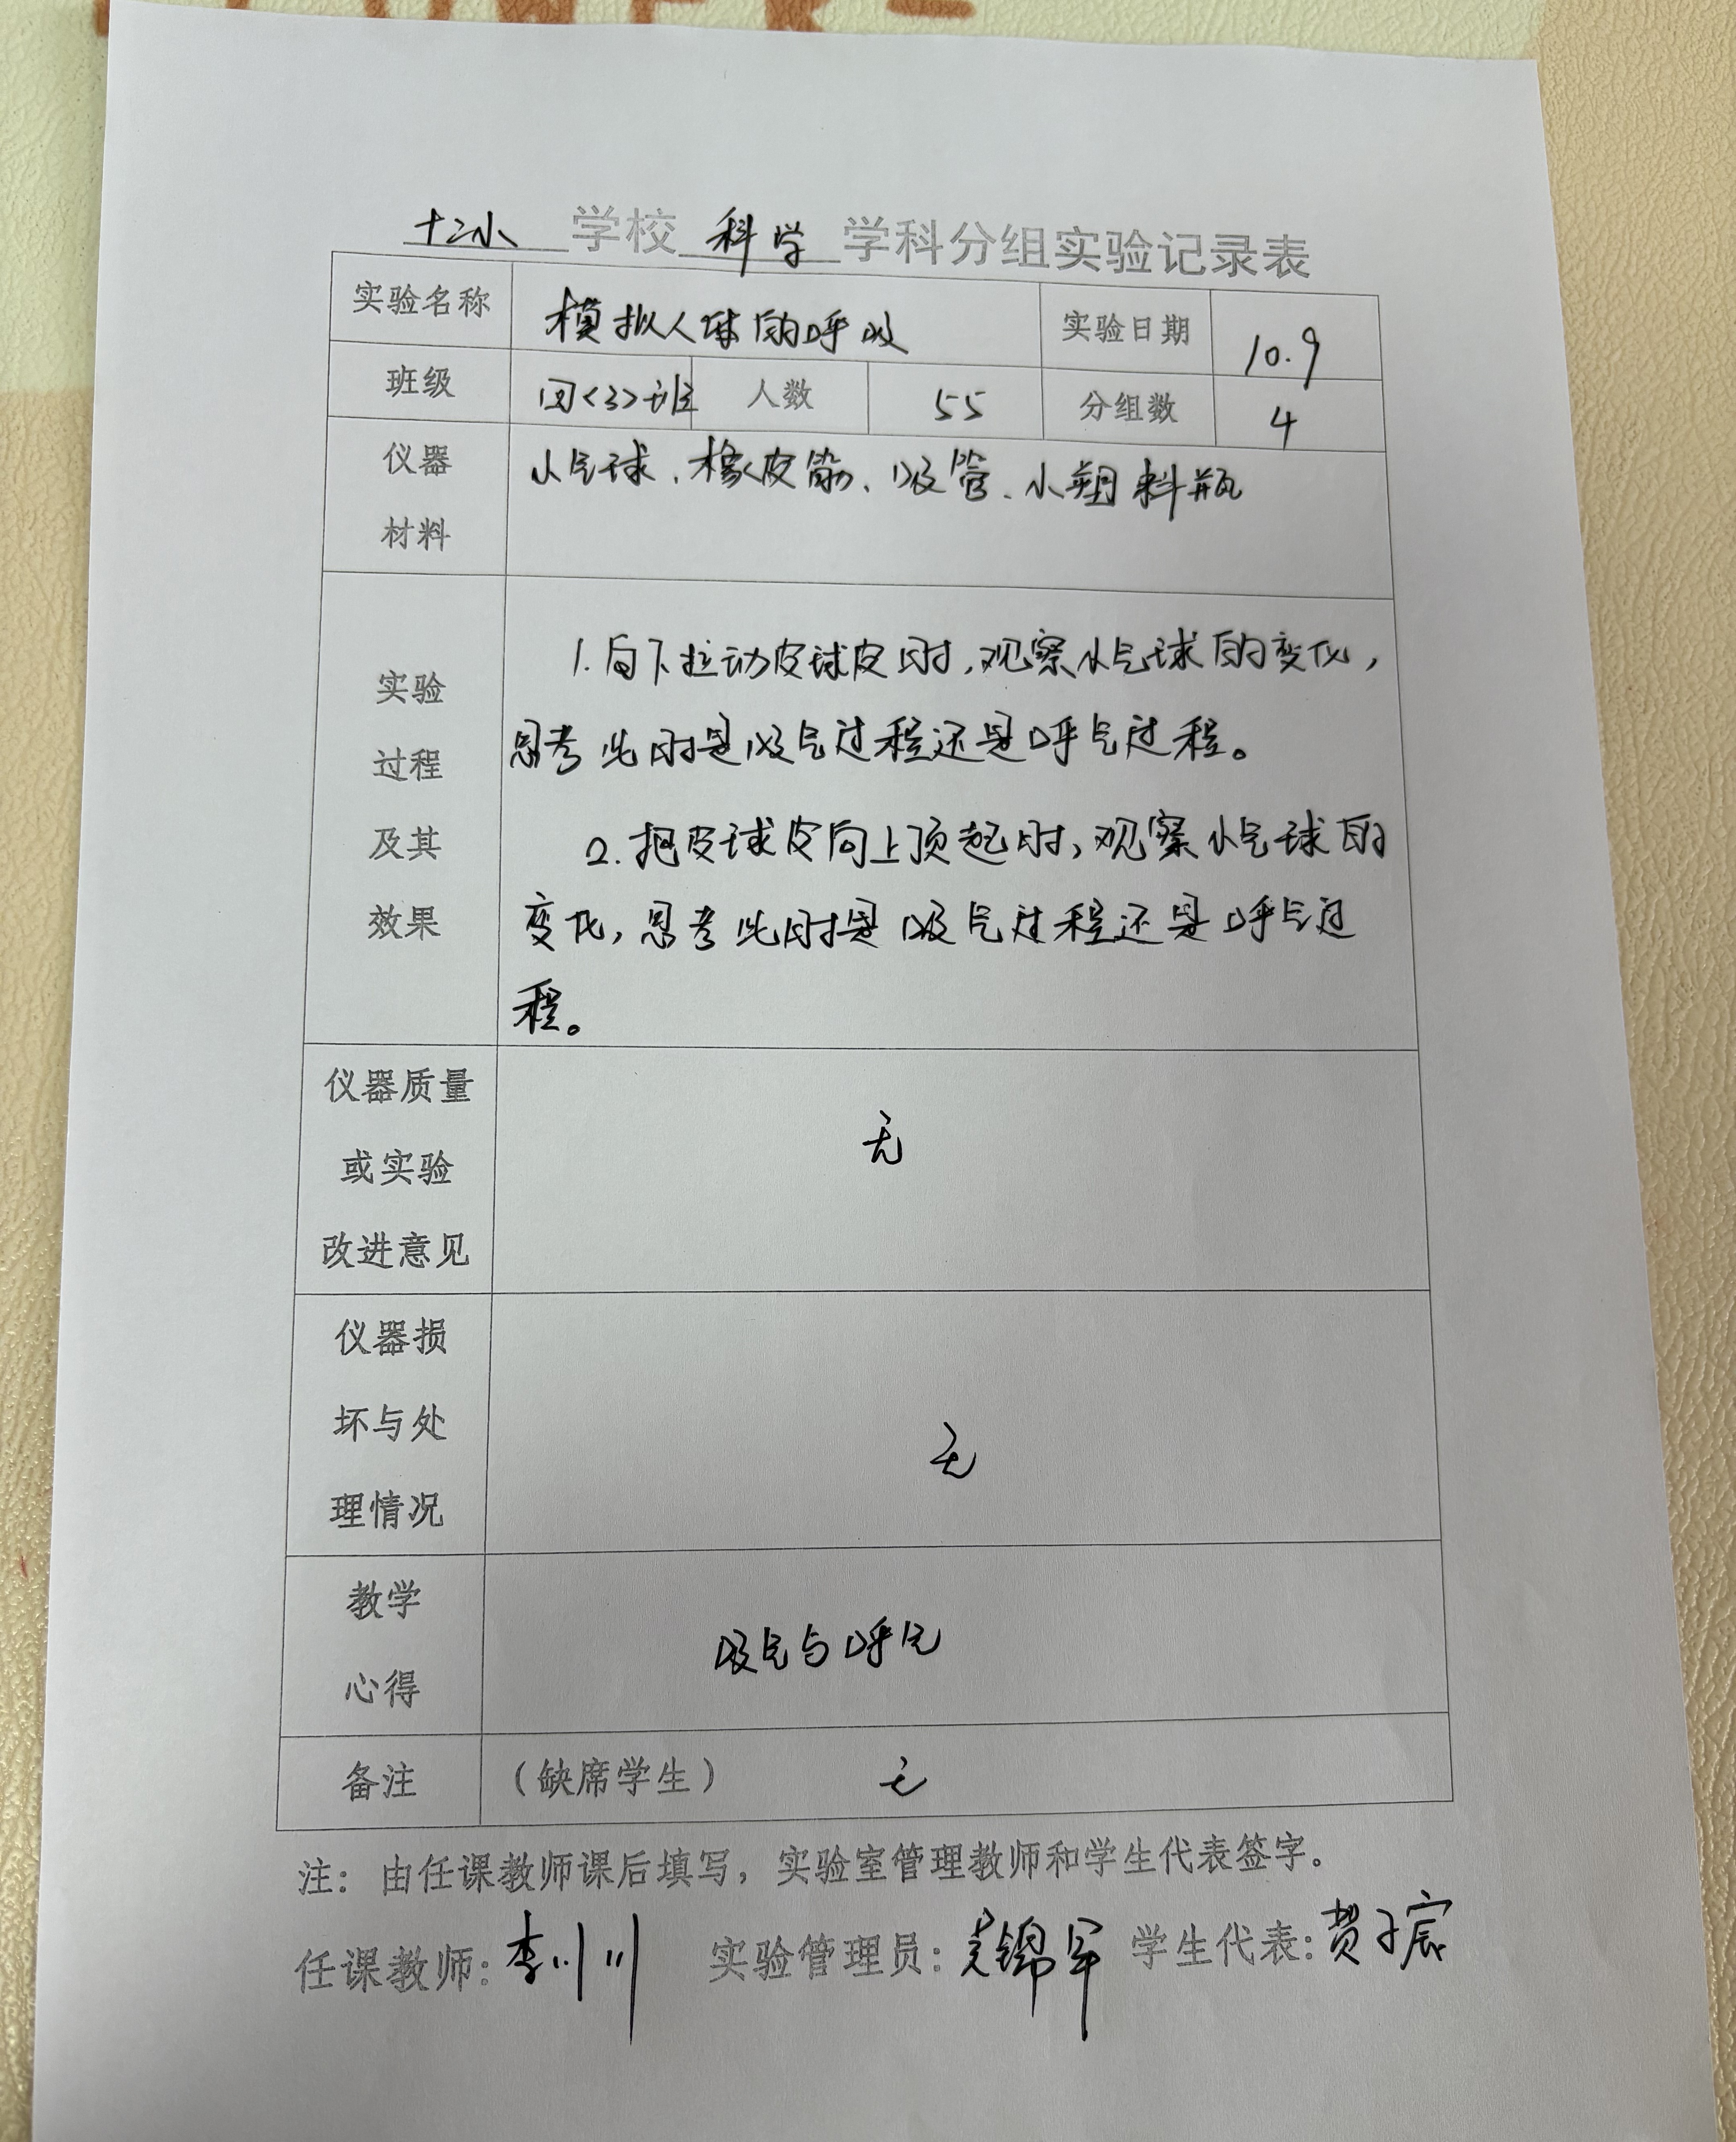 十二小 学校 科学 学科分组实验记录表
实验名称 模拟人体的呼吸 实验日期 10.9
班级 四<3>班 人数 55 分组数 4
仪器 小气球、橡皮筋、吸管、小塑料瓶
材料
1.向下拉动皮球皮时,观察小气球的变化,
实验
思考此时是吸气过程还是呼气过程。
过程
2.把皮球皮向上顶起时,观察小气球的
及其
变化,思考此时是吸气过程还是呼气过
效果
程。
仪器质量
无
或实验
改进意见
仪器损
坏与处
无
理情况
教学
吸气与呼气
心得
备注 (缺席学生) 无
注：由任课教师课后填写，实验室管理教师和学生代表签字。
任课教师: 李 实验管理员: 锦军 学生代表: 贾子宸